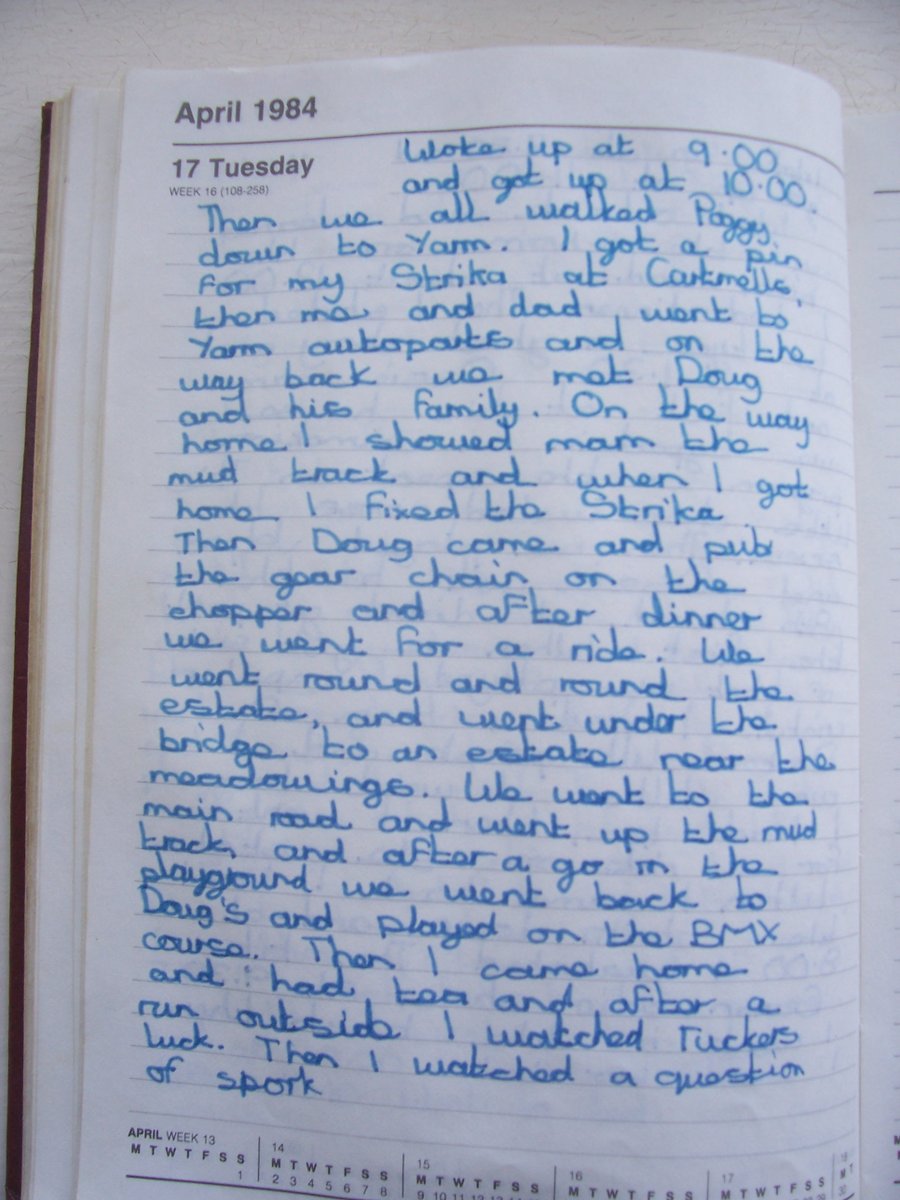 April 1984
17 Tuesday
WEEK 16 (108-258)
Woke up at 9.00
and got up at 10.00.
Then we all walked Poggy
down to Yarm. I got a pin
for my Strika at Cartmells,
then me and dad went to
Yarm autoparts and on the
way back we met Doug
and his family. On the way
home I showed mam the
mud track and when I got
home I fixed the Strika
Then Doug came and put
the gear chain on the
chopper and after dinner
we went for a ride. We
went round and round the
estate, and went under the
bridge to an estate near the
meadowings. We went to the
main road and went up the mud
track, and after a go in the
playground we went back to
Doug's and played on the BMX
course. Then I came home
and had tea and after a
run outside I watched Tuckers
luck. Then I watched a question
of spork
APRIL WEEK 13 14 15 16 17
M T W T F S S M T W T F S S M T W T F S S M T W T F S S M T W T F S S
1 2 3 4 5 6 7 8 9 10 11 12 13